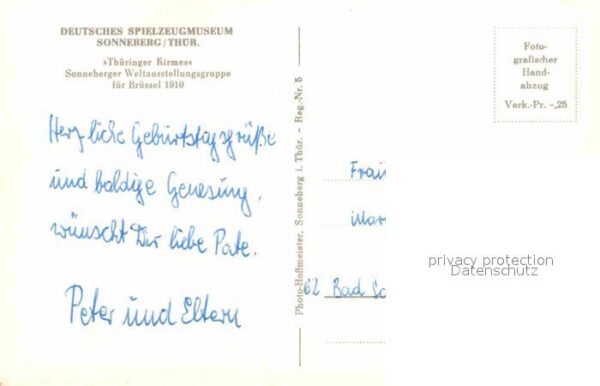 DEUTSCHES SPIELZEUGMUSEUM
SONNEBERG/THÜR.
»Thüringer Kirmes«
Sonneberger Weltausstellungsgruppe
für Brüssel 1910
Herzliche Geburtstagsgrüße
und baldige Genesung,
wünscht Dir liebe Pate.
Peter und Eltern
Photo-Hoffmeister, Sonneberg i. Thür. - Reg.-Nr. 5
Foto-
grafischer
Hand-
abzug
Verk.-Pr. -,25
62 Bad
privacy protection
Datenschutz